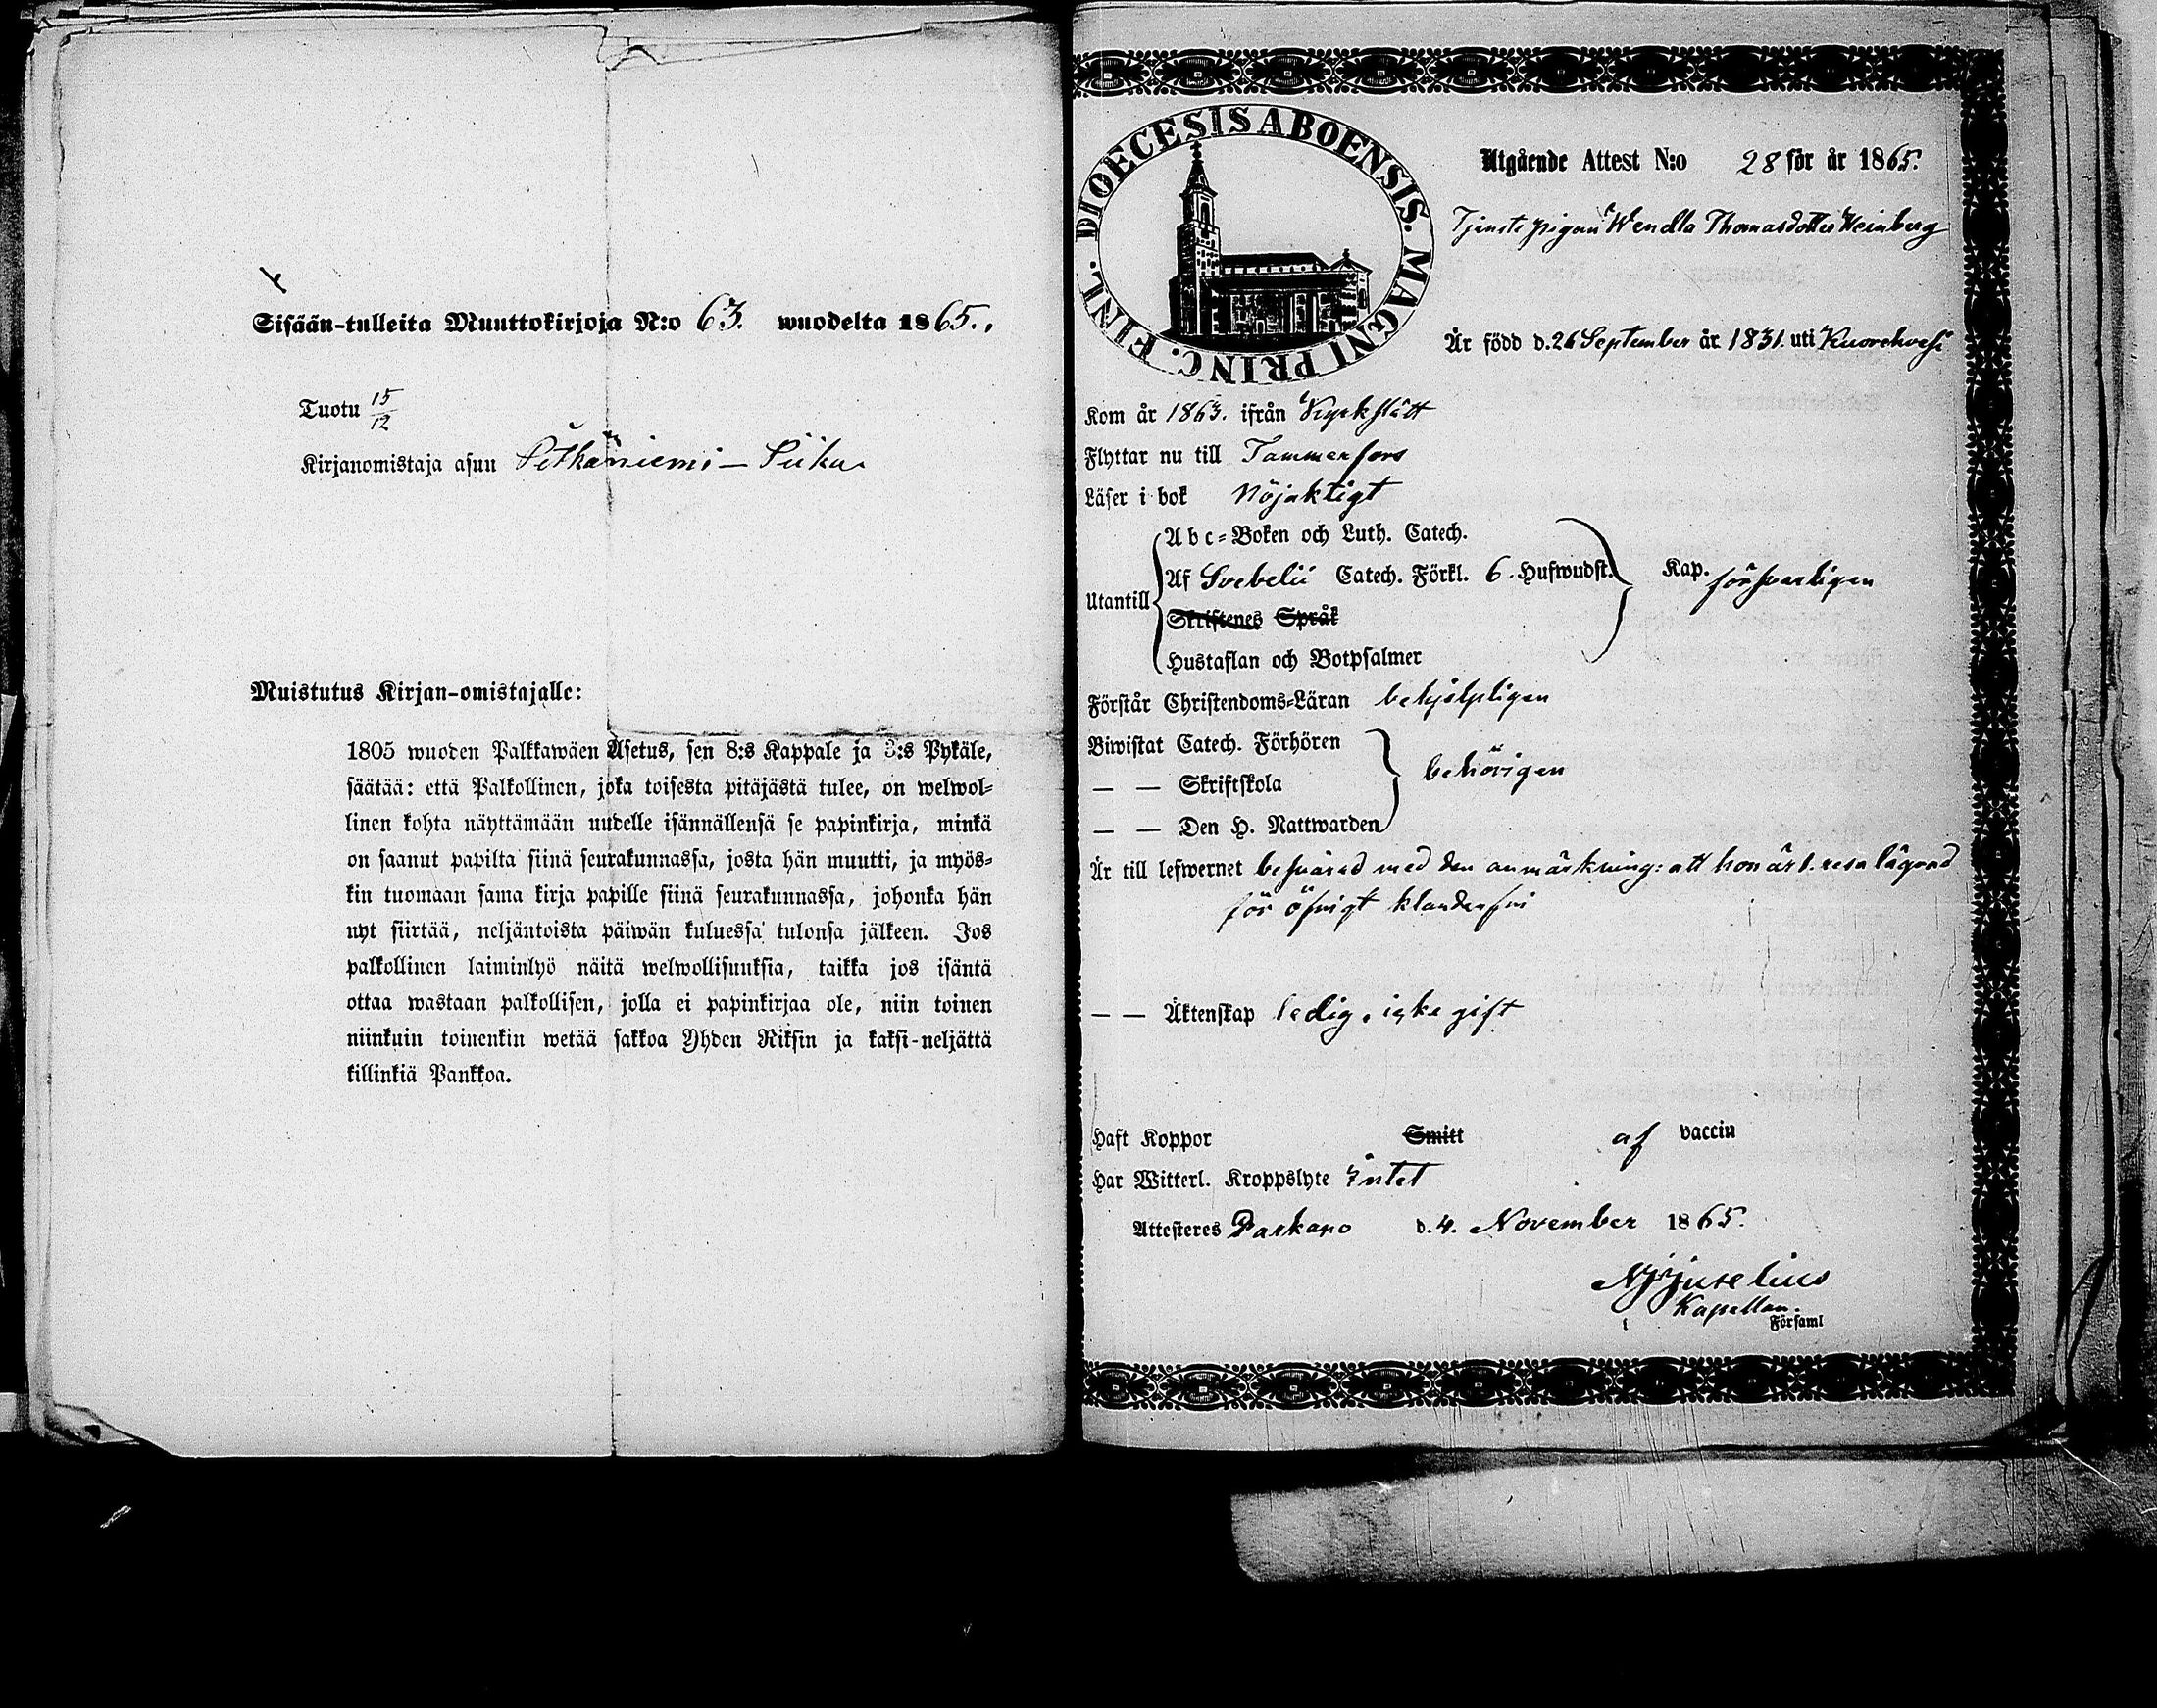 Sisään-tulleita Muuttokirjoja N:o 63. wuodelta 1865.
Tuotu 15/12
Kirjanomistaja asuu Pitkäniemi – Piiku
Muistutus Kirjan-omistajalle:
1805 wuoden Palkkawäen Asetus, sen 8:s Kappale ja 3:s Pykäle,
säätää: että Palkollinen, joka toisesta pitäjästä tulee, on welwol=
linen kohta näyttämään uudelle isännällensä se papinkirja, minkä
on saanut papilta siinä seurakunnassa, josta hän muutti, ja myös=
kin tuomaan sama kirja papille siinä seurakunnassa, johonka hän
nyt siirtää, neljäntoista päiwän kuluessa tulonsa jälkeen. Jos
palkollinen laiminlyö näitä welwollisuuksia, taikka jos isäntä
ottaa wastaan palkollisen, jolla ei papinkirjaa ole, niin toinen
niinkuin toinenkin wetää sakkoa Yhden Riksin ja kaksi-neljättä
killinkiä Pankkoa.
DIOECESIS ABOENSIS. MAGNI PRINC. FINL.
Utgående Attest N:o 28 för år 1865.
Tjenste pigan Wendla Thomasdotter Weinberg
Är född d. 26 September år 1831. uti Kuorehvesi
Kom år 1863. ifrån Kyrkslätt
Flyttar nu till Tammerfors
Läser i bok nöjaktigt
Utantill
Abc=Boken och Luth. Catech.
Af Svebelii Catech. Förkl. 6. Hufwudst. Kap. försvarligen
Skriftenes Språk
Hustaflan och Botpsalmer
Förstår Christendoms=Läran behjelpligen
Biwistat Catech. Förhören
— — Skriftskola behörigen
— — Den H. Nattwarden
Är till lefwernet besvärad med den anmärkning: att hon är 1. resa lägrad
för öfrigt klanderfri
— — Äktenskap ledig, icke gift
Haft Koppor Smitt af vaccin
Har Witterl. Kroppslyte Intet
Attesteres Parkano d. 4. November 1865.
Kapellan.
i Församl